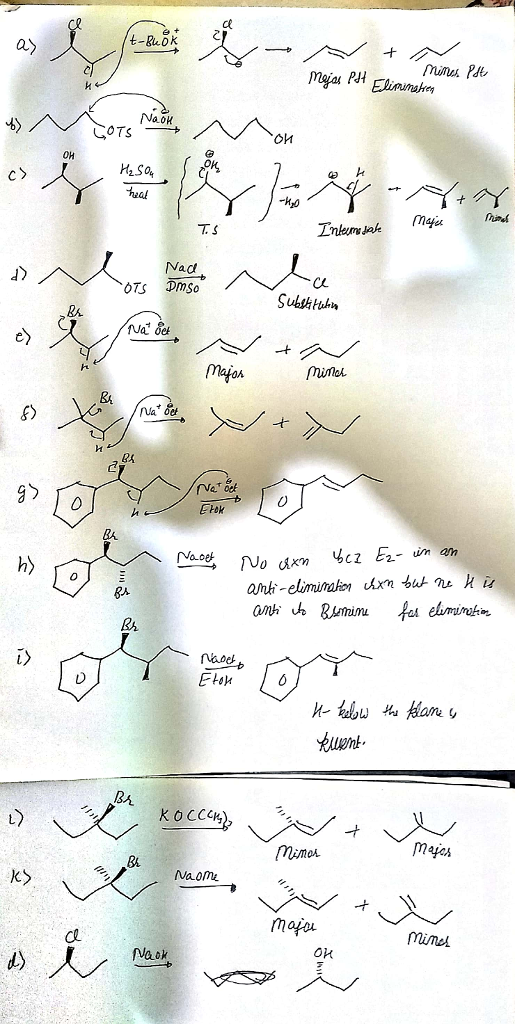 a) Cl t-BuOK Cl + H
Major Pdt Minor Pdt
Elimination
b) NaOH OTS OH
c) OH H2SO4 heat OH2 -H2O H +
T.S Intermediate Major Minor
d) OTS NaCl DMSO Cl
Substitution
e) Br Na+ Oet H +
Major Minor
f) Br Na+ Oet H +
g) Br Na+ Oet EtOH H
h) Br Br NaOet No rxn bcz E2- in an
anti-elimination rxn but no H is
anti to Bromine for elimination
i) Br NaOet EtOH
H- below the plane is
present.
i) Br KOC(CH3)3 +
Minor Major
k) Br NaOMe +
Major Minor
d) Cl NaOH OH